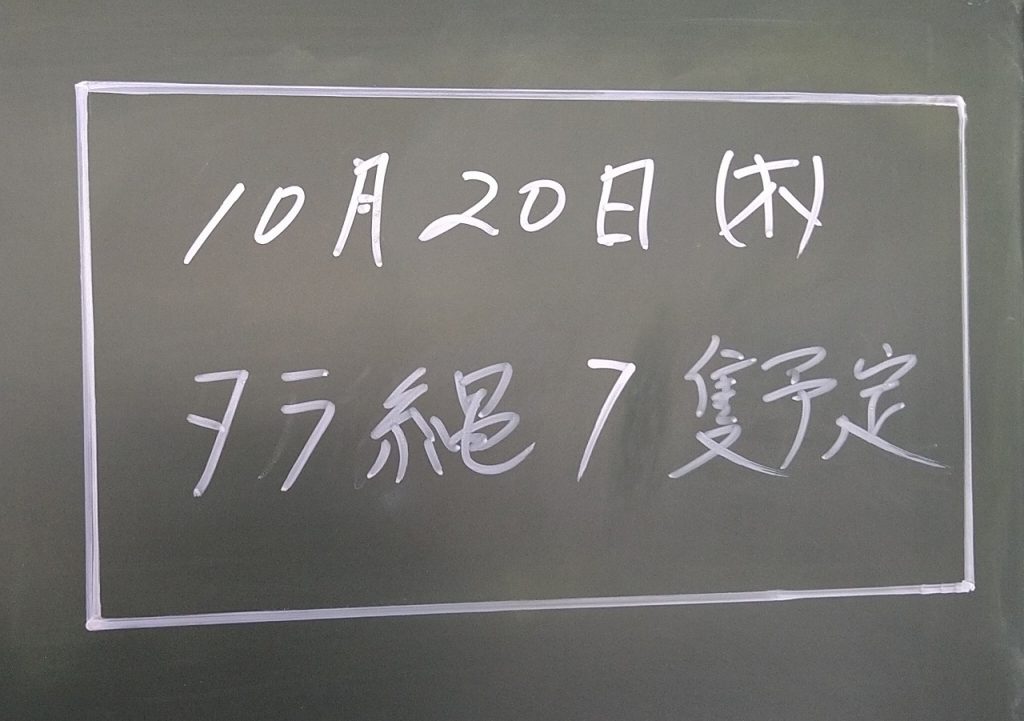 10月20日(木)
タラ縄7隻予定